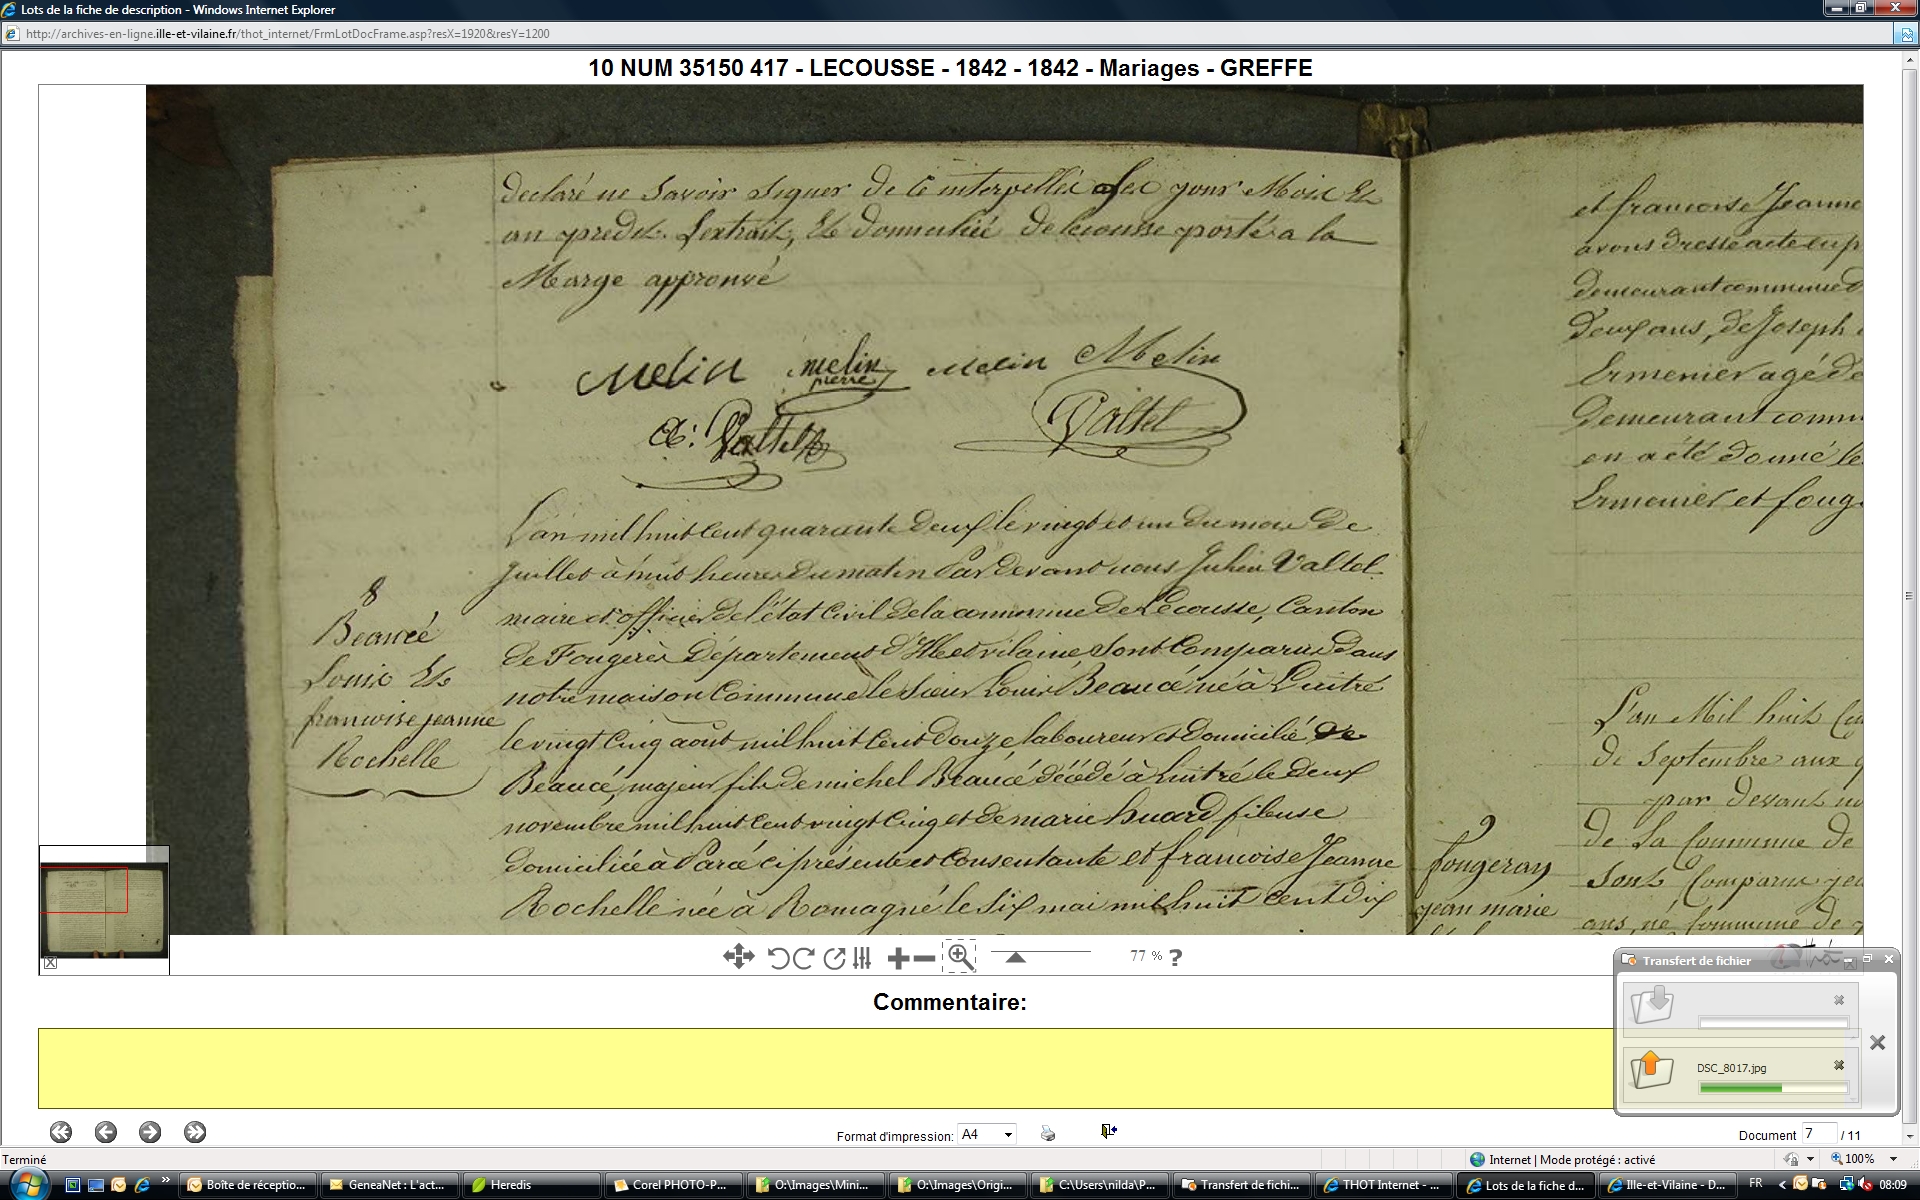 Lots de la fiche de description - Windows Internet Explorer
http://archives-en-ligne.ille-et-vilaine.fr/thot_internet/FrmLotDocFrame.asp?resX=1920&resY=1200
10 NUM 35150 417 - LECOUSSE - 1842 - 1842 - Mariages - GREFFE
declaré ne Savoir Signer de ce interpellés Les jour Mois Et
an predit. L'extrait, Et domiciliée delecousse porté a la
Marge approuvé
Melin melin pierre Melin Melin
Valtel Valtel
L'an mil huit cent quarante deux le vingt et un du mois De
juillet à huit heures du matin Par Devant nous Julien Valtel
maire et officier de l'état Civil de la commune De Lécousse, Canton
de Fougères Département d'Ille et vilaine Sont Comparus Dans
notre maison Commune le Sieur Louis Beaucé né à Luitré
le vingt Cinq août mil huit Cent Douze laboureur et domicilié de
Beaucé, majeur fils de michel Beaucé décédé à Luitré le Deux
novembre mil huit cent vingt Cinq et de marie huard fileuse
Domiciliée à Parcé ci présente et Consentante et francoise Jeanne
Rochelle née à Romagné le Six mai mil huit cent Dix
8
Beaucé
Louis Et
francoise jeanne
Rochelle
et francoise Jeanne
avons dresse acte en p
demeurant commune d
Deux ans, de Joseph
Ermenier agé de
Demeurant comm
en a été donné le
Ermenier et foug
9
fougeray
jean marie
L'an Mil huit
de Septembre aux
par devant no
de La Commune de
Sont Comparus
ans, né Commune de
77 % ?
Commentaire:
Transfert de fichier
DSC_8017.jpg
Format d'impression: A4
Document 7 / 11
Terminé
Internet | Mode protégé : activé
100%
Boîte de réceptio...
GeneaNet : L'act...
Heredis
Corel PHOTO-P...
O:\Images\Mini...
O:\Images\Origi...
C:\Users\nilda\P...
Transfert de fichi...
THOT Internet - ...
Lots de la fiche d...
Ille-et-Vilaine - D...
FR
08:09